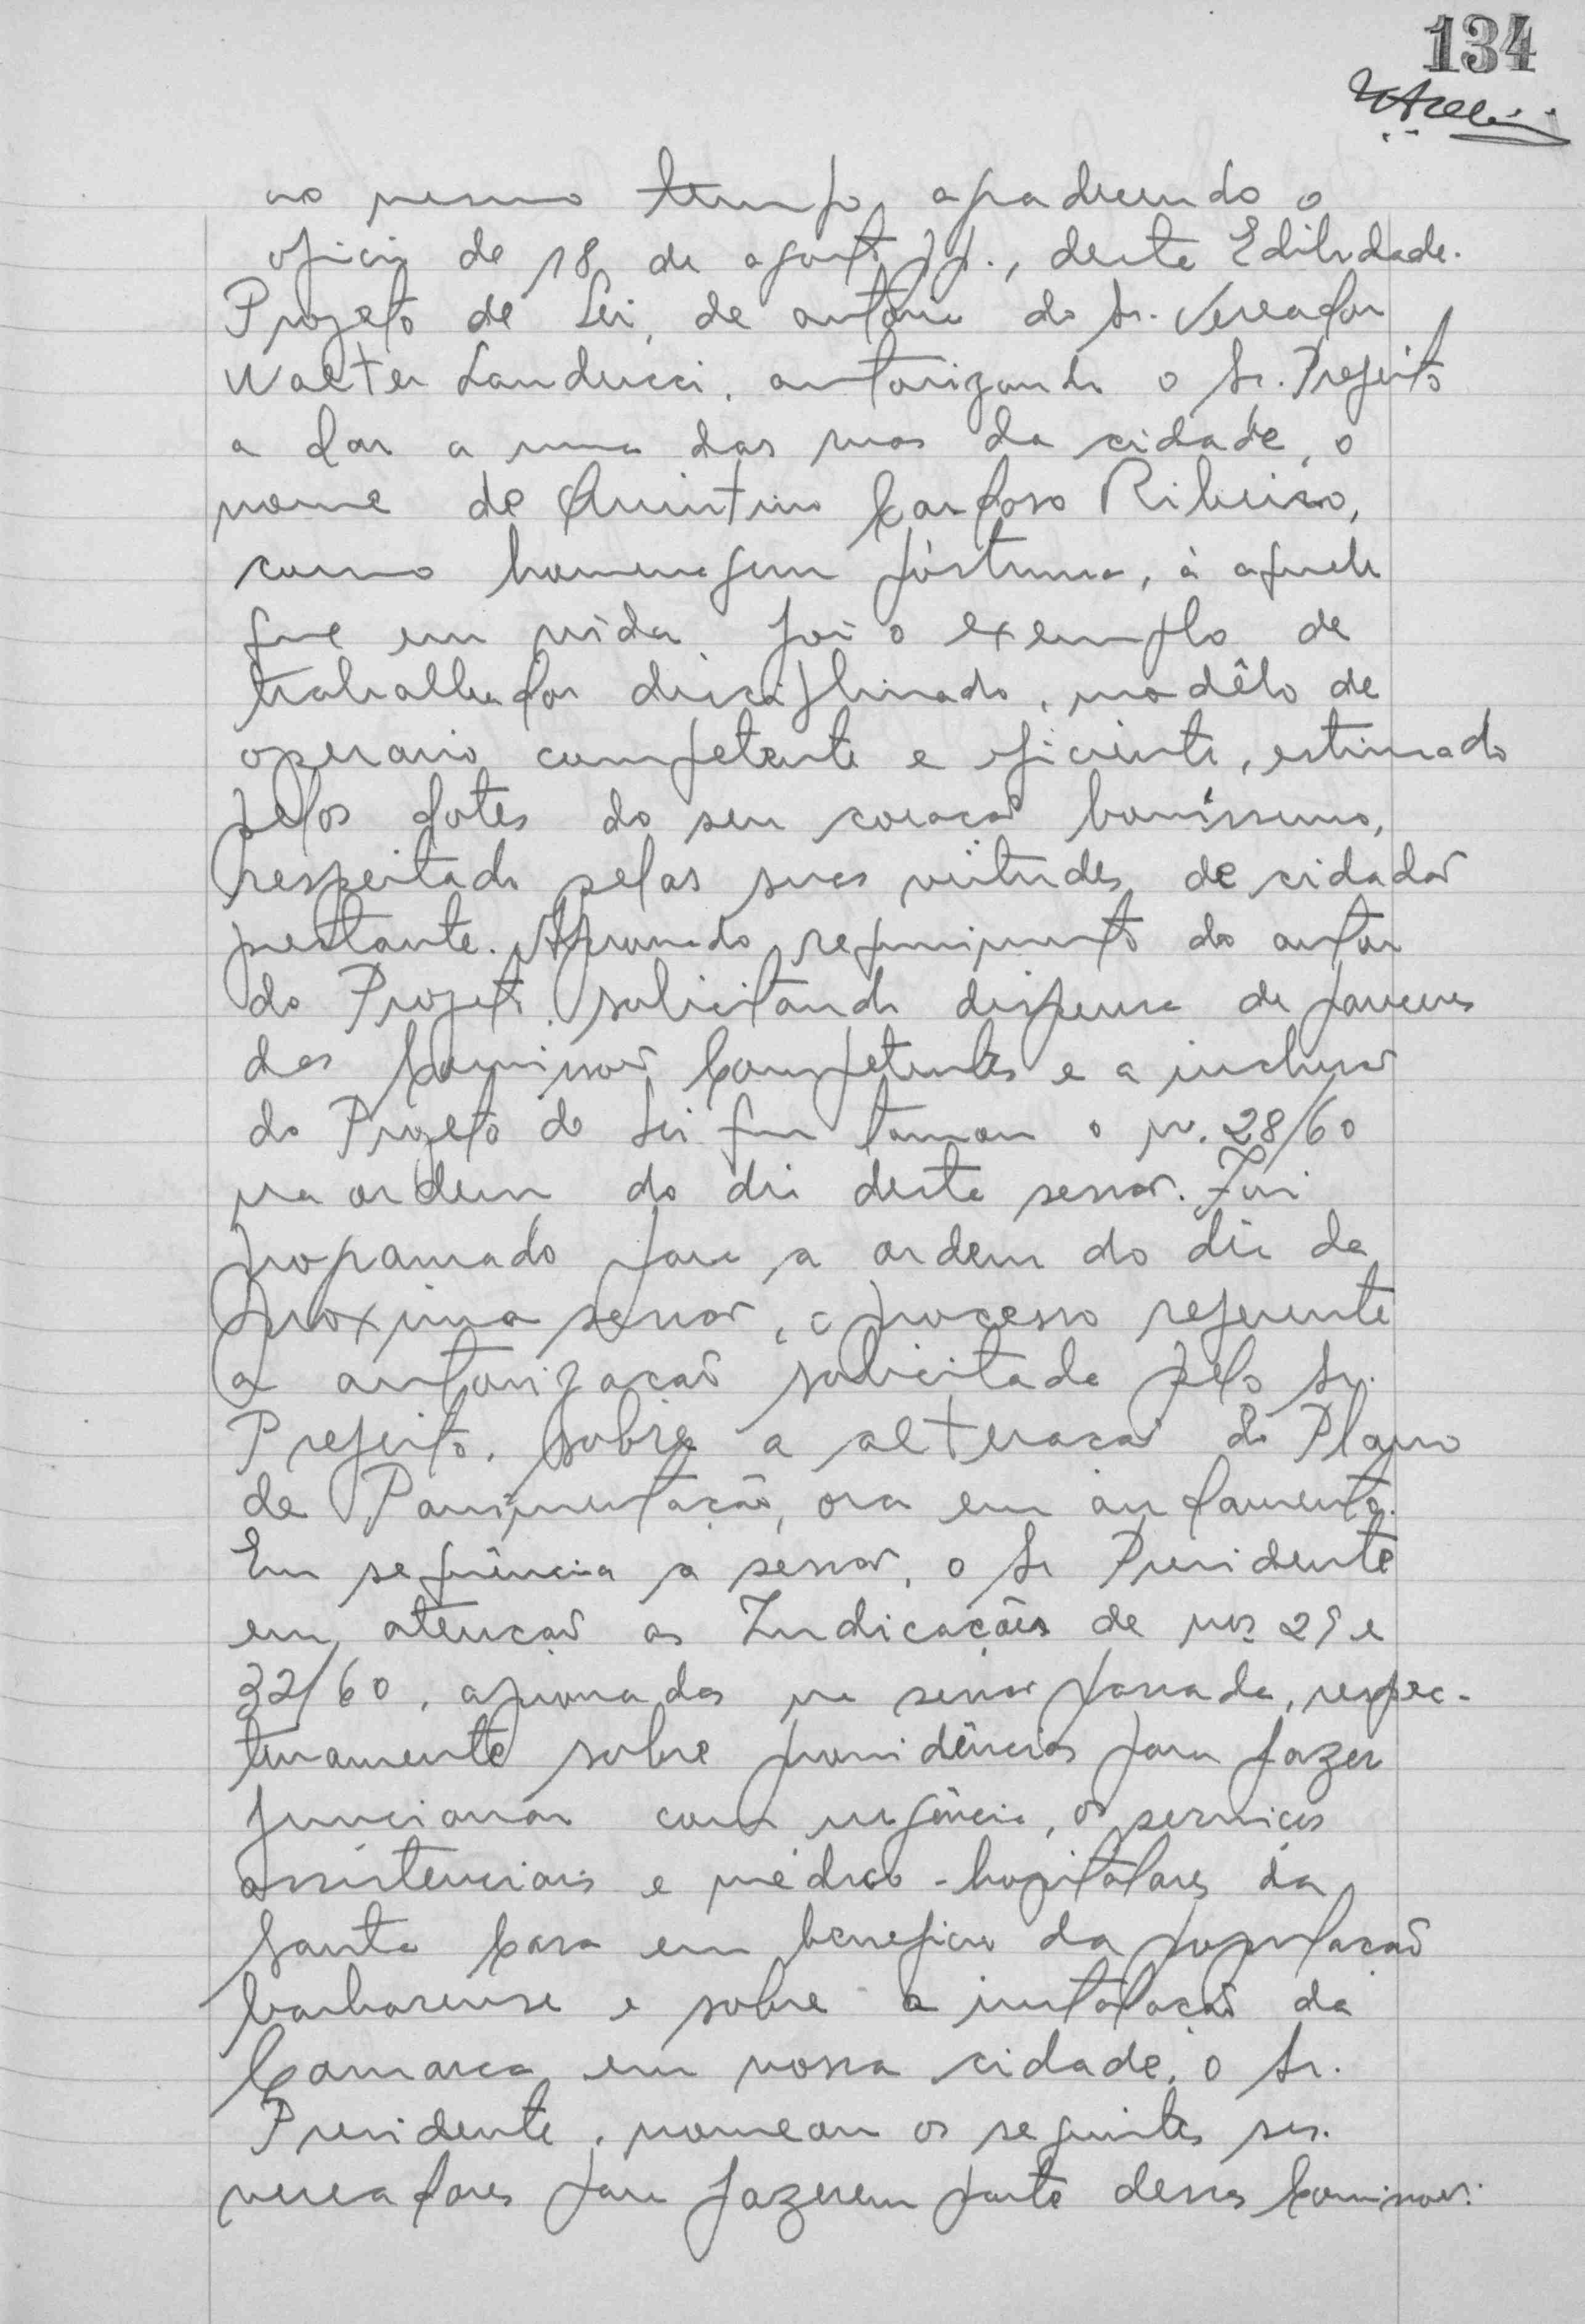 134
ao mesmo tempo agradecendo o
oficio de 18 de agosto pp., desta Edilidade.
Projeto de Lei, de autoria do Sr. Vereador
Walter Landucci, autorizando o Sr. Prefeito
a dar a uma das ruas da cidade, o
nome de Quintino Cardoso Ribeiro,
como homenagem póstuma, à aquele
que em vida foi o exemplo de
trabalhador disciplinado, modêlo de
operario competente e eficiente, estimado
pelos dotes do seu coração bonissimo,
respeitado pelas suas virtudes de cidadão
prestante. Aprovado requerimento do autor
do Projeto, solicitando dispensa de pareceres
das Comissões Competentes e a inclusão
do Projeto de Lei que tomou o nº. 28/60
na ordem do dia desta sessão. Foi
programado para a ordem do dia da
proxima sessão, o processo referente
a autorização solicitada pelo Sr.
Prefeito, sobre a alteração do Plano
de Pavimentação, ora em andamento.
Em sequência a sessão, o Sr Presidente
em atenção as Indicações de nos. 29 e
32/60, aprovadas na sessão passada, respec-
tivamente sobre providências para fazer
funcionar com urgência, os serviços
assistenciais e médico-hospitalares da
Santa Casa em beneficio da população
barbarense e sobre a instalação da
Comarca em nossa cidade, o Sr.
Presidente, nomeou os seguintes srs.
vereadores para fazerem parte dessas Comissões: